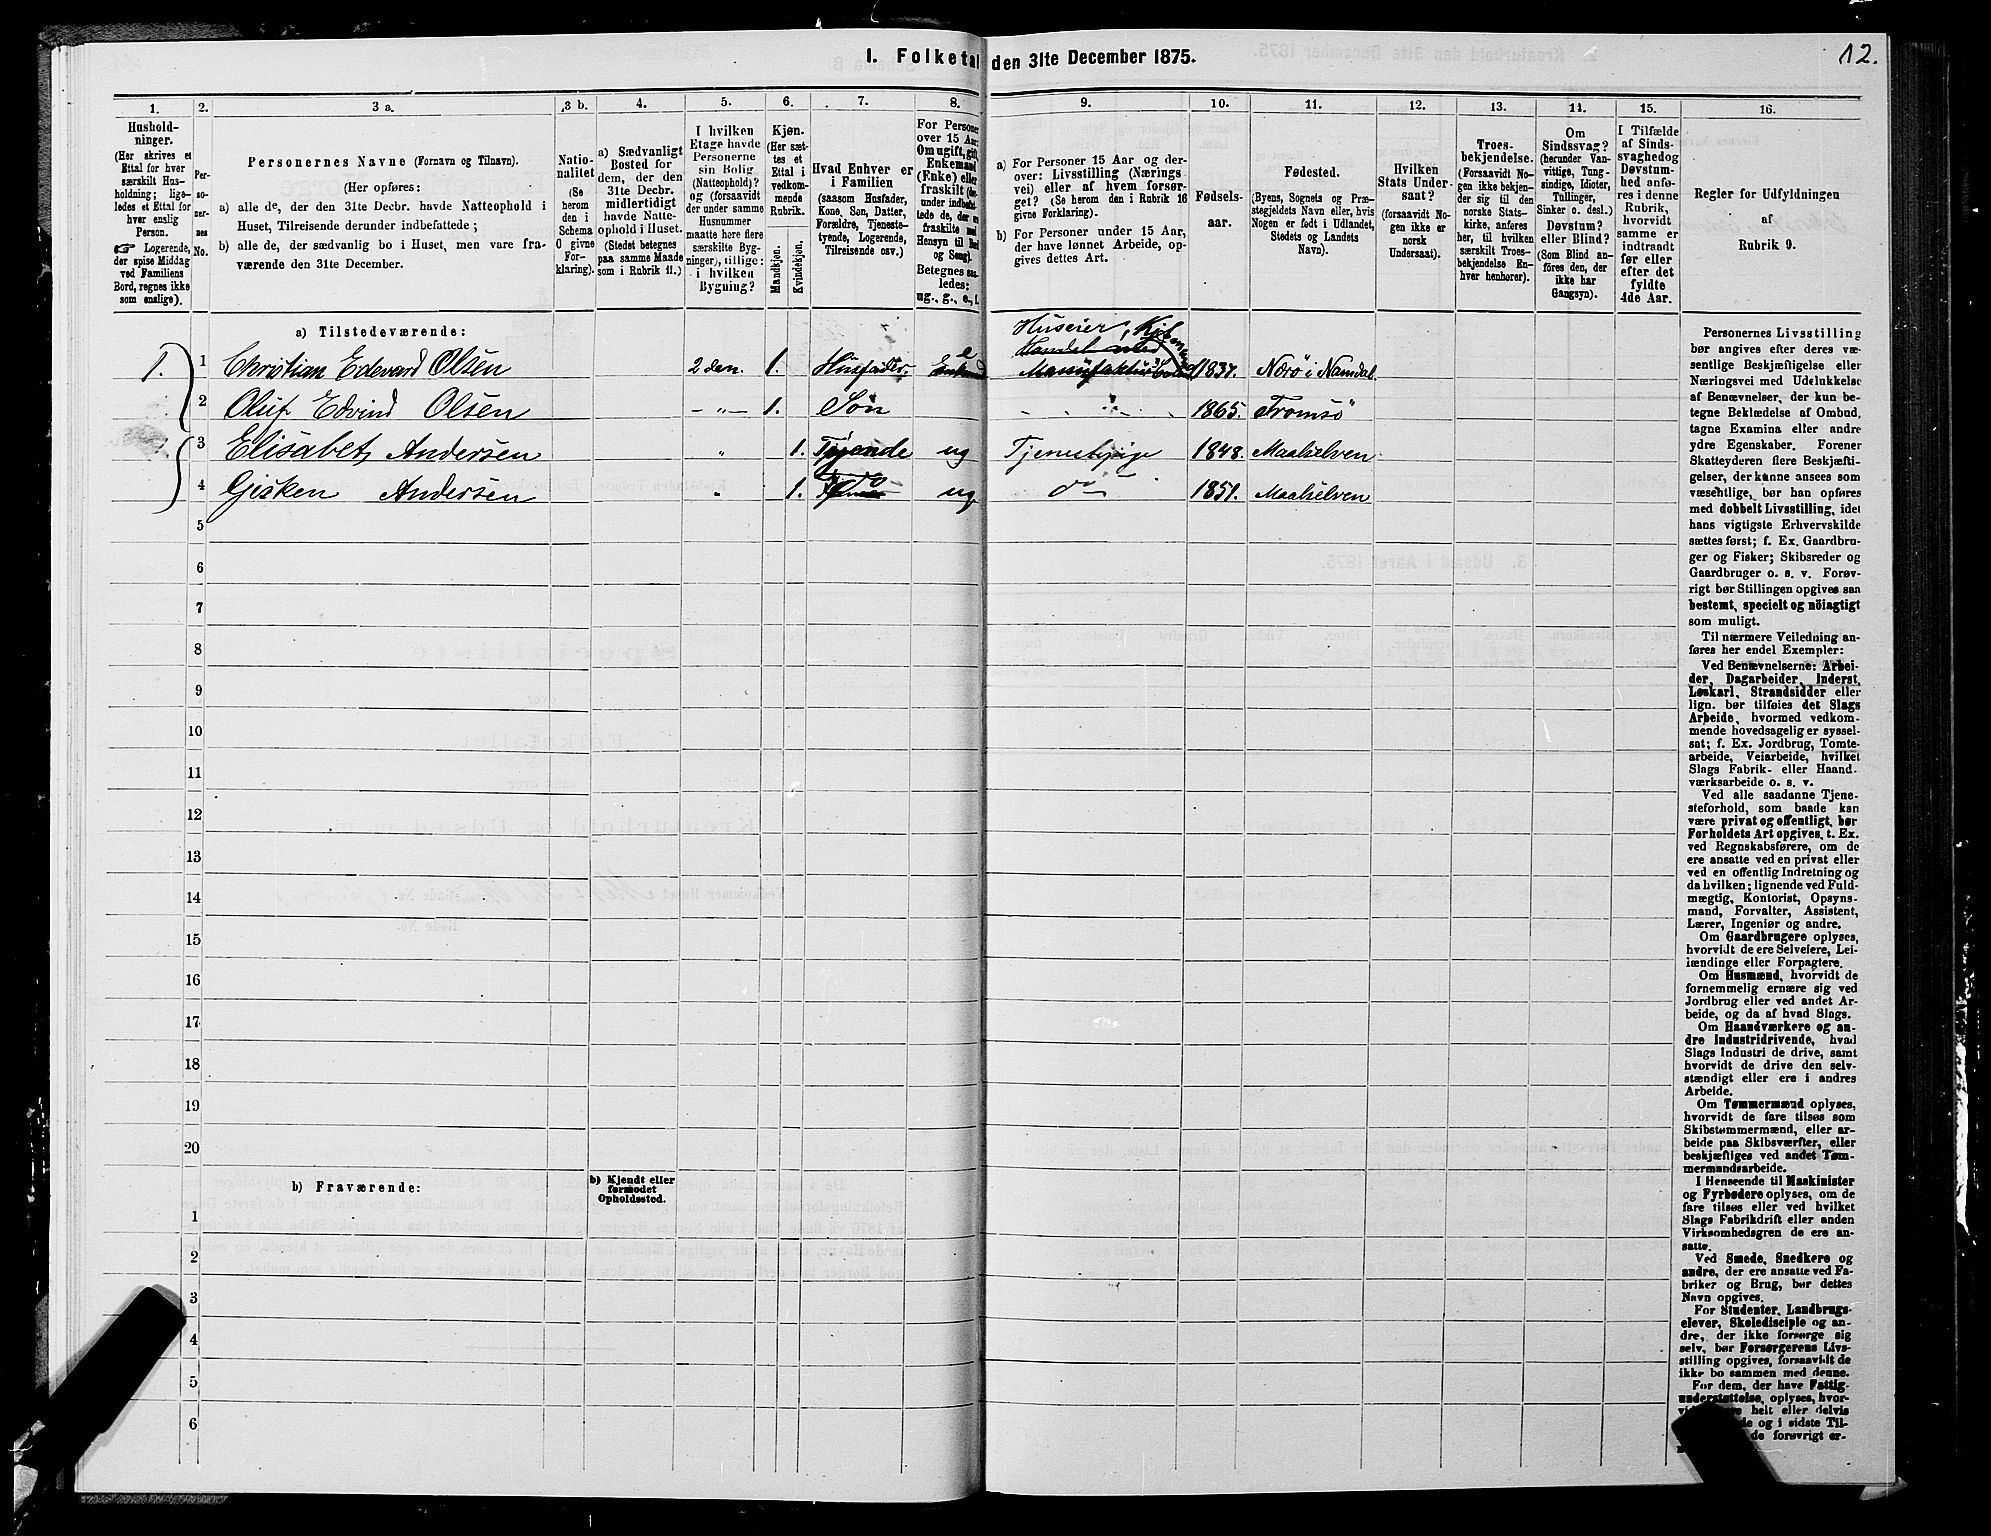 I. Folketal den 31te December 1875.
12.
1. 2. 3 a. 3 b. 4. 5. 6. 7. 8. 9. 10. 11. 12. 13. 14. 15. 16.
Hushold-
ninger.
(Her skrives et
Ettal for hver
særskilt Hus-
holdning; lige-
ledes et Ettal for
hver enslig
Person.
☞ Logerende,
der spise Middag
ved Familiens
Bord, regnes ikke
som enslige).
Per-
so-
ner-
nes
No.
Personernes Navne (Fornavn og Tilnavn).
(Her opføres:
a) alle de, der den 31te Decbr. havde Natteophold i
Huset, Tilreisende derunder indbefattede;
b) alle de, der sædvanlig bo i Huset, men vare fra-
værende den 31te December.
Natio-
nalitet
(Se
herom
den i
Schema
O givne
For-
klaring).
a) Sædvanligt
Bosted for
dem, der den
31te Decbr.
midlertidigt
havde Natte-
ophold i Huset.
(Stedet betegnes
paa samme Maade
som i Rubrik 11.)
I hvilken
Etage havde
Personerne
sin Bolig
(Natteophold)?
og (forsaavidt
der under samme
Husnummer
maatte høre flere
særskilte Byg-
ninger), tillige:
i hvilken
Bygning?
Kjøn.
(Her sæt-
tes et
Ettal i
vedkom-
mende
Rubrik.
Mandkjøn.
Kvindekjøn.
Hvad Enhver er
i Familien
(saasom Husfader,
Kone, Søn, Datter,
Forældre, Tjeneste-
tyende, Logerende,
Tilreisende osv.)
For Personer
over 15 Aar:
Om ugift, gift,
Enkemand
(Enke) eller
fraskilt (der-
under indbefat-
tede de, der ere
fraskilte med
Hensyn til Bord
og Seng).
Betegnes saa-
ledes:
ug., g., e., f.
a) For Personer 15 Aar og der-
over: Livsstilling (Nærings-
vei) eller af hvem forsør-
get? (Se herom den i Rubrik 16
givne Forklaring).
b) For Personer under 15 Aar,
der have lønnet Arbeide, op-
gives dettes Art.
Fødsels-
aar.
Fødested.
(Byens, Sognets og Præ-
stegjeldets Navn eller, hvis
Nogen er født i Udlandet,
Stedets og Landets
Navn).
Hvilken
Stats Under-
saat?
(forsaavidt No-
gen ikke er
norsk
Undersaat).
Troes-
bekjendelse.
(Forsaavidt No-
gen ikke bekjen-
der sig til den
norske Stats-
kirke, anføres
her, til hvilken
særskilt Troes-
bekjendelse En-
hver henhører).
Om
Sindssvag?
(herunder Van-
vittige, Tung-
sindige, Idioter,
Tullinger,
Sinker o. desl.)
Døvstum?
eller Blind?
(Som Blind an-
føres den, der
ikke har
Gangsyn).
I Tilfælde
af Sinds-
svaghed og
Døvstum-
hed anfø-
res i denne
Rubrik,
hvorvidt
samme er
indtraadt
før eller
efter det
fyldte
4de Aar.
Regler for Udfyldningen
af
Rubrik 9.
a) Tilstedeværende:
Huseier, Kjøbmand
Handel med
1. 1 Christian Edevard Olsen 2den. 1. Husfader e Manufaktur 1837. Nærø i Namdal.
2 Oluf Edvind Olsen -"- 1. Søn 1865. Tromsø
3 Elisabet Andersen " 1. Tjyende ug Tjenestpige 1848. Maalselven
4 Gisken Andersen " 1. do ug do 1851. Maalselven
5
6
7
8
9
10
11
12
13
14
15
16
17
18
19
20
b) Fraværende:
b) Kjendt eller
formodet
Opholdssted.
1
2
3
4
5
6
Personernes Livsstilling
bør angives efter deres væ-
sentlige Beskjæftigelse eller
Næringsvei med Udelukkelse
af Benævnelser, der kun be-
tegne Beklædelse af Ombud,
tagne Examina eller andre
ydre Egenskaber. Forener
Skatteyderen flere Beskjæfti-
gelser, der kunne ansees som
væsentlige, bør han opføres
med dobbelt Livsstilling, idet
hans vigtigste Erhvervskilde
sættes først; f. Ex. Gaardbru-
ger og Fisker; Skibsreder og
Gaardbruger o. s. v. Forøv-
rigt bør Stillingen opgives saa
bestemt, specielt og nöiagtigt
som muligt.
Til nærmere Veiledning an-
føres her endel Exempler:
Ved Benævnelserne: Arbei-
der, Dagarbeider, Inderst,
Løskarl, Strandsidder eller
lign. bør tilføies det Slags
Arbeide, hvormed vedkom-
mende hovedsagelig er syssel-
sat; f. Ex. Jordbrug, Tomte-
arbeide, Veiarbeide, hvilket
Slags Fabrik- eller Haand-
værksarbeide o. s. v.
Ved alle saadanne Tjene-
steforhold, som baade kan
være privat og offentligt, bør
Forholdets Art opgives, t. Ex.
ved Regnskabsførere, om de
ere ansatte ved en privat eller
ved en offentlig Indretning og
da hvilken; lignende ved Fuld-
mægtig, Kontorist, Opsyns-
mand, Forvalter, Assistent,
Lærer, Ingeniør og andre.
Om Gaardbrugere oplyses,
hvorvidt de ere Selveiere, Lei-
lændinge eller Forpagtere.
Om Husmænd, hvorvidt de
fornemmelig ernære sig ved
Jordbrug eller ved andet Ar-
beide, og da af hvad Slags.
Om Haandværkere og an-
dre Industridrivende, hvad
Slags Industri de drive, samt
hvorvidt de drive den selv-
stændigt eller ere i andres
Arbeide.
Om Tømmermænd oplyses,
hvorvidt de fare tilsøs som
Skibstømmermænd, eller ar-
beide paa Skibsværfter, eller
beskjæftiges ved andet Tøm-
mermandsarbeide.
I Henseende til Maskinister
og Fyrbødere oplyses, om de
fare tilsøs eller ved hvilket
Slags Fabrikdrift eller anden
Virksomhedsgren de ere an-
satte.
Ved Smede, Snedkere og
andre, der ere ansatte ved Fa-
briker og Brug, bør dettes
Navn opgives.
For Studenter, Landbrugs-
elever, Skoledisciple og an-
dre, der ikke forsørge sig
selv, bør Forsørgerens Livs-
stilling opgives, forsaavidt de
ikke bo sammen med denne.
For dem, der have Fattig-
understøttelse, oplyses, hvor-
helt eller delvis
og i sidste Til-
de forøvrigt er-